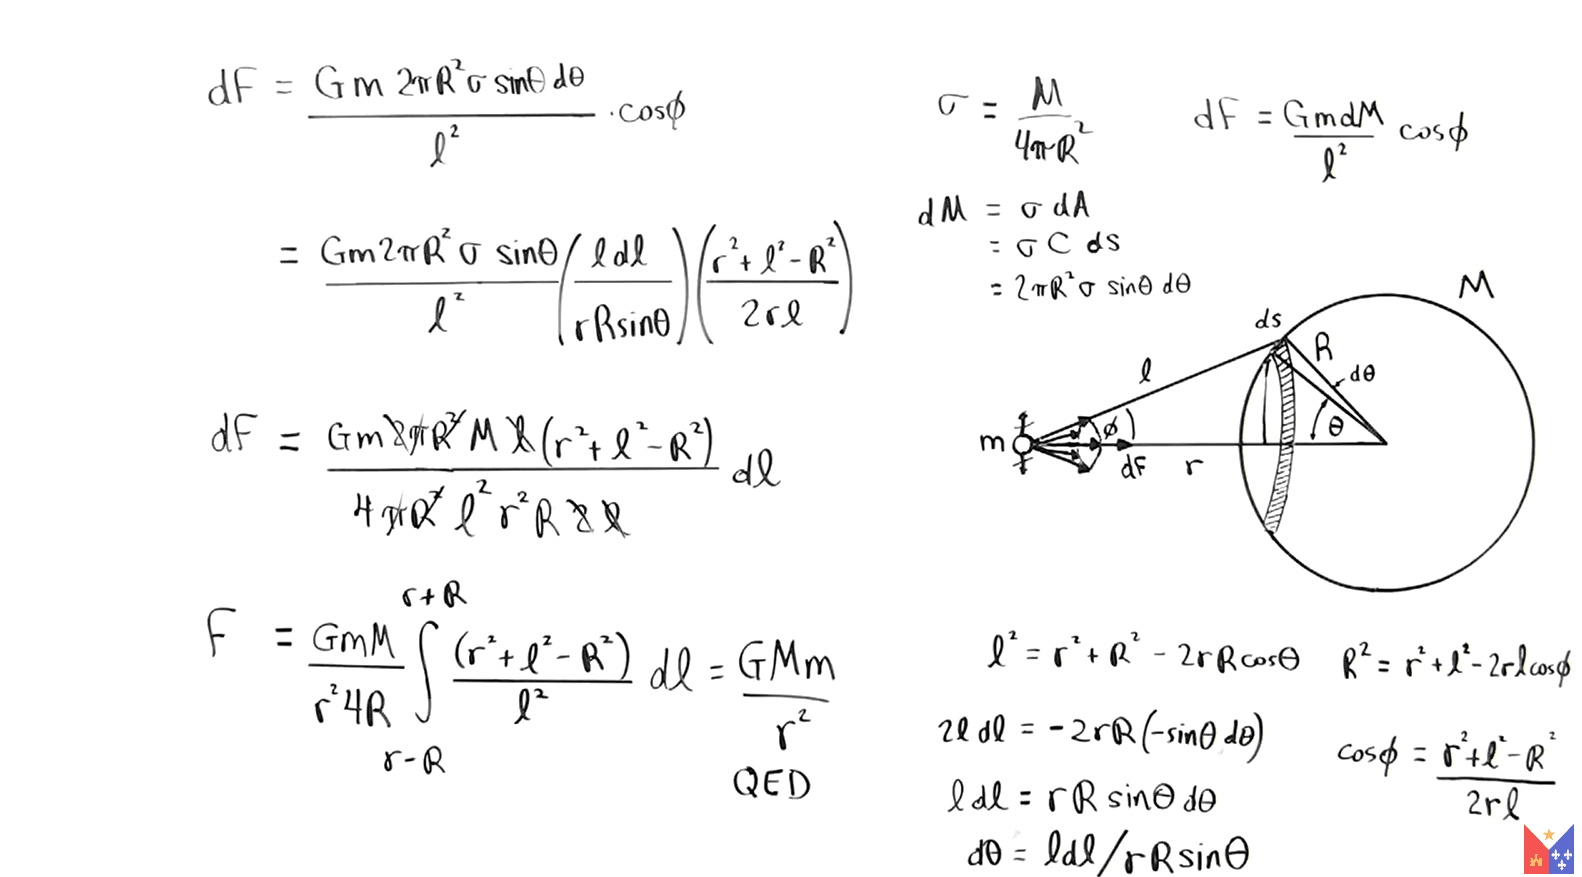 dF = Gm 2πR²σ sinθ dθ / l² · cosϕ
= Gm2πR²σ sinθ / l² (l dl / rRsinθ) (r² + l² - R² / 2rl)
dF = Gm2πR² M l (r² + l² - R²) / 4πR² l² r² R 2 l dl
F = GmM / r²4R ∫ r+R r-R (r² + l² - R²) / l² dl = GMm / r²
QED
σ = M / 4πR²
dF = GmdM / l² cosϕ
dM = σ dA
= σ C ds
= 2πR²σ sinθ dθ
M
ds
R
dθ
l
θ
m
ϕ
dF
r
l² = r² + R² - 2rRcosθ
2l dl = -2rR(-sinθ dθ)
l dl = rR sinθ dθ
dθ = ldl/rRsinθ
R² = r² + l² - 2rlcosϕ
cosϕ = r² + l² - R² / 2rl